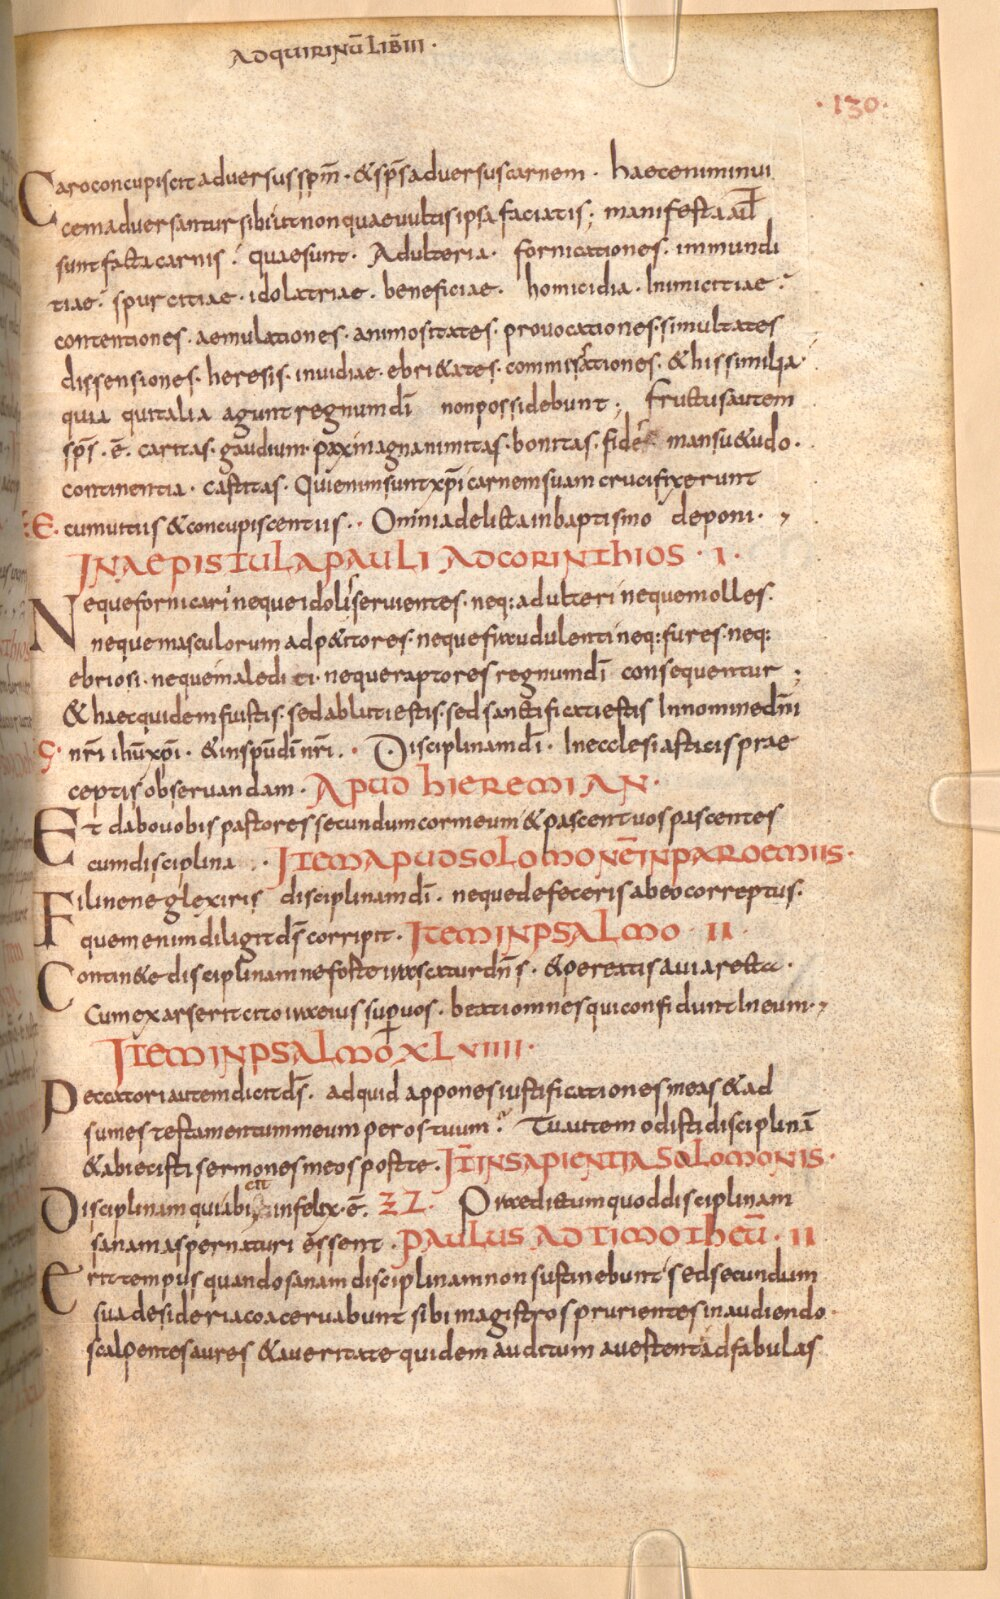 ADQUIRINŪ LIB̄ III ·
· 130 ·
Caro concupiscit adversus spm̄ · & sp̄s adversus carnem · haec enim invi
cem adversantur sibi ut non quae vultis ipsa faciatis ; manifesta aut̄
sunt facta carnis · quae sunt · Adulteria · fornicationes · immundi
tiae · spurcitiae · idolatriae · beneficiae · homicidia · Inimicitiae ·
contentiones · aemulationes · animositates · provocationes · simultates
dissensiones · heresis · invidiae · ebri&ates · commisationes · & his similia ·
quia qui talia agunt regnum dī non possidebunt ; fructus autem
sp̄s · ē · caritas · gaudium · pax magnanimitas · bonitas · fides mansu&udo ·
continentia · castitas · Qui enim sunt xp̄i carnem suam crucifixerunt
E · cum vitiis & concupiscentiis · Omnia delicta in baptismo deponi ·
IN AEPISTULA PAULI AD CORINTHIOS · I ·
Neque fornicari neque idolis servientes · neq: adulteri neque molles ·
neque masculorum adp&itores · neque fraudulenti neq: fures · neq:
ebriosi · neque maledici · neque raptores regnum dī consequentur ;
& haec quidem fuistis · sed abluti estis · sed sanctificati estis In nomine dn̄i
S · nr̄i ihū xp̄i · & in spū dī nr̄i · Disciplinam dī · In ecclesiasticis prae
ceptis observandam · APUD HIEREMIAN ·
Et dabo vobis pastores secundum cor meum & pascent vos pascentes
cum disciplina · ITEM APUD SOLOMONĒ IN PAROEMIIS ·
Fili ne neglexiris disciplinam dī · neque defeceris ab eo correptus ·
quem enim diligit d̄s corripit · ITEM IN PSALMO · II ·
Contin&e disciplinam ne forte irascatur dn̄s · & pereatis a via recta ·
Cum exarserit cito ira eius super vos · beati omnes qui confidunt In eum ·
ITEM IN PSALMO XLVIIII ·
Peccatori autem dicit d̄s · ad quid appones iustificationes meas & ad
sumes testamentum meum per os tuum · Tu autem odisti disciplinā
& abiecisti sermones meos post te · IT̄ IN SAPIENTIA SALOMONIS ·
Disciplinam qui abicit infelix · ē · ZZ · Praedictum quod disciplinam
sanam aspernaturi essent · PAULUS AD TIMOTHEŪ · II
Erit tempus quando sanam disciplinam non sustinebunt sed secundum
sua desideria coacervabunt sibi magistros prurientes in audiendo
scalpentes aures & a veritate quidem auditum avestent ad fabulas